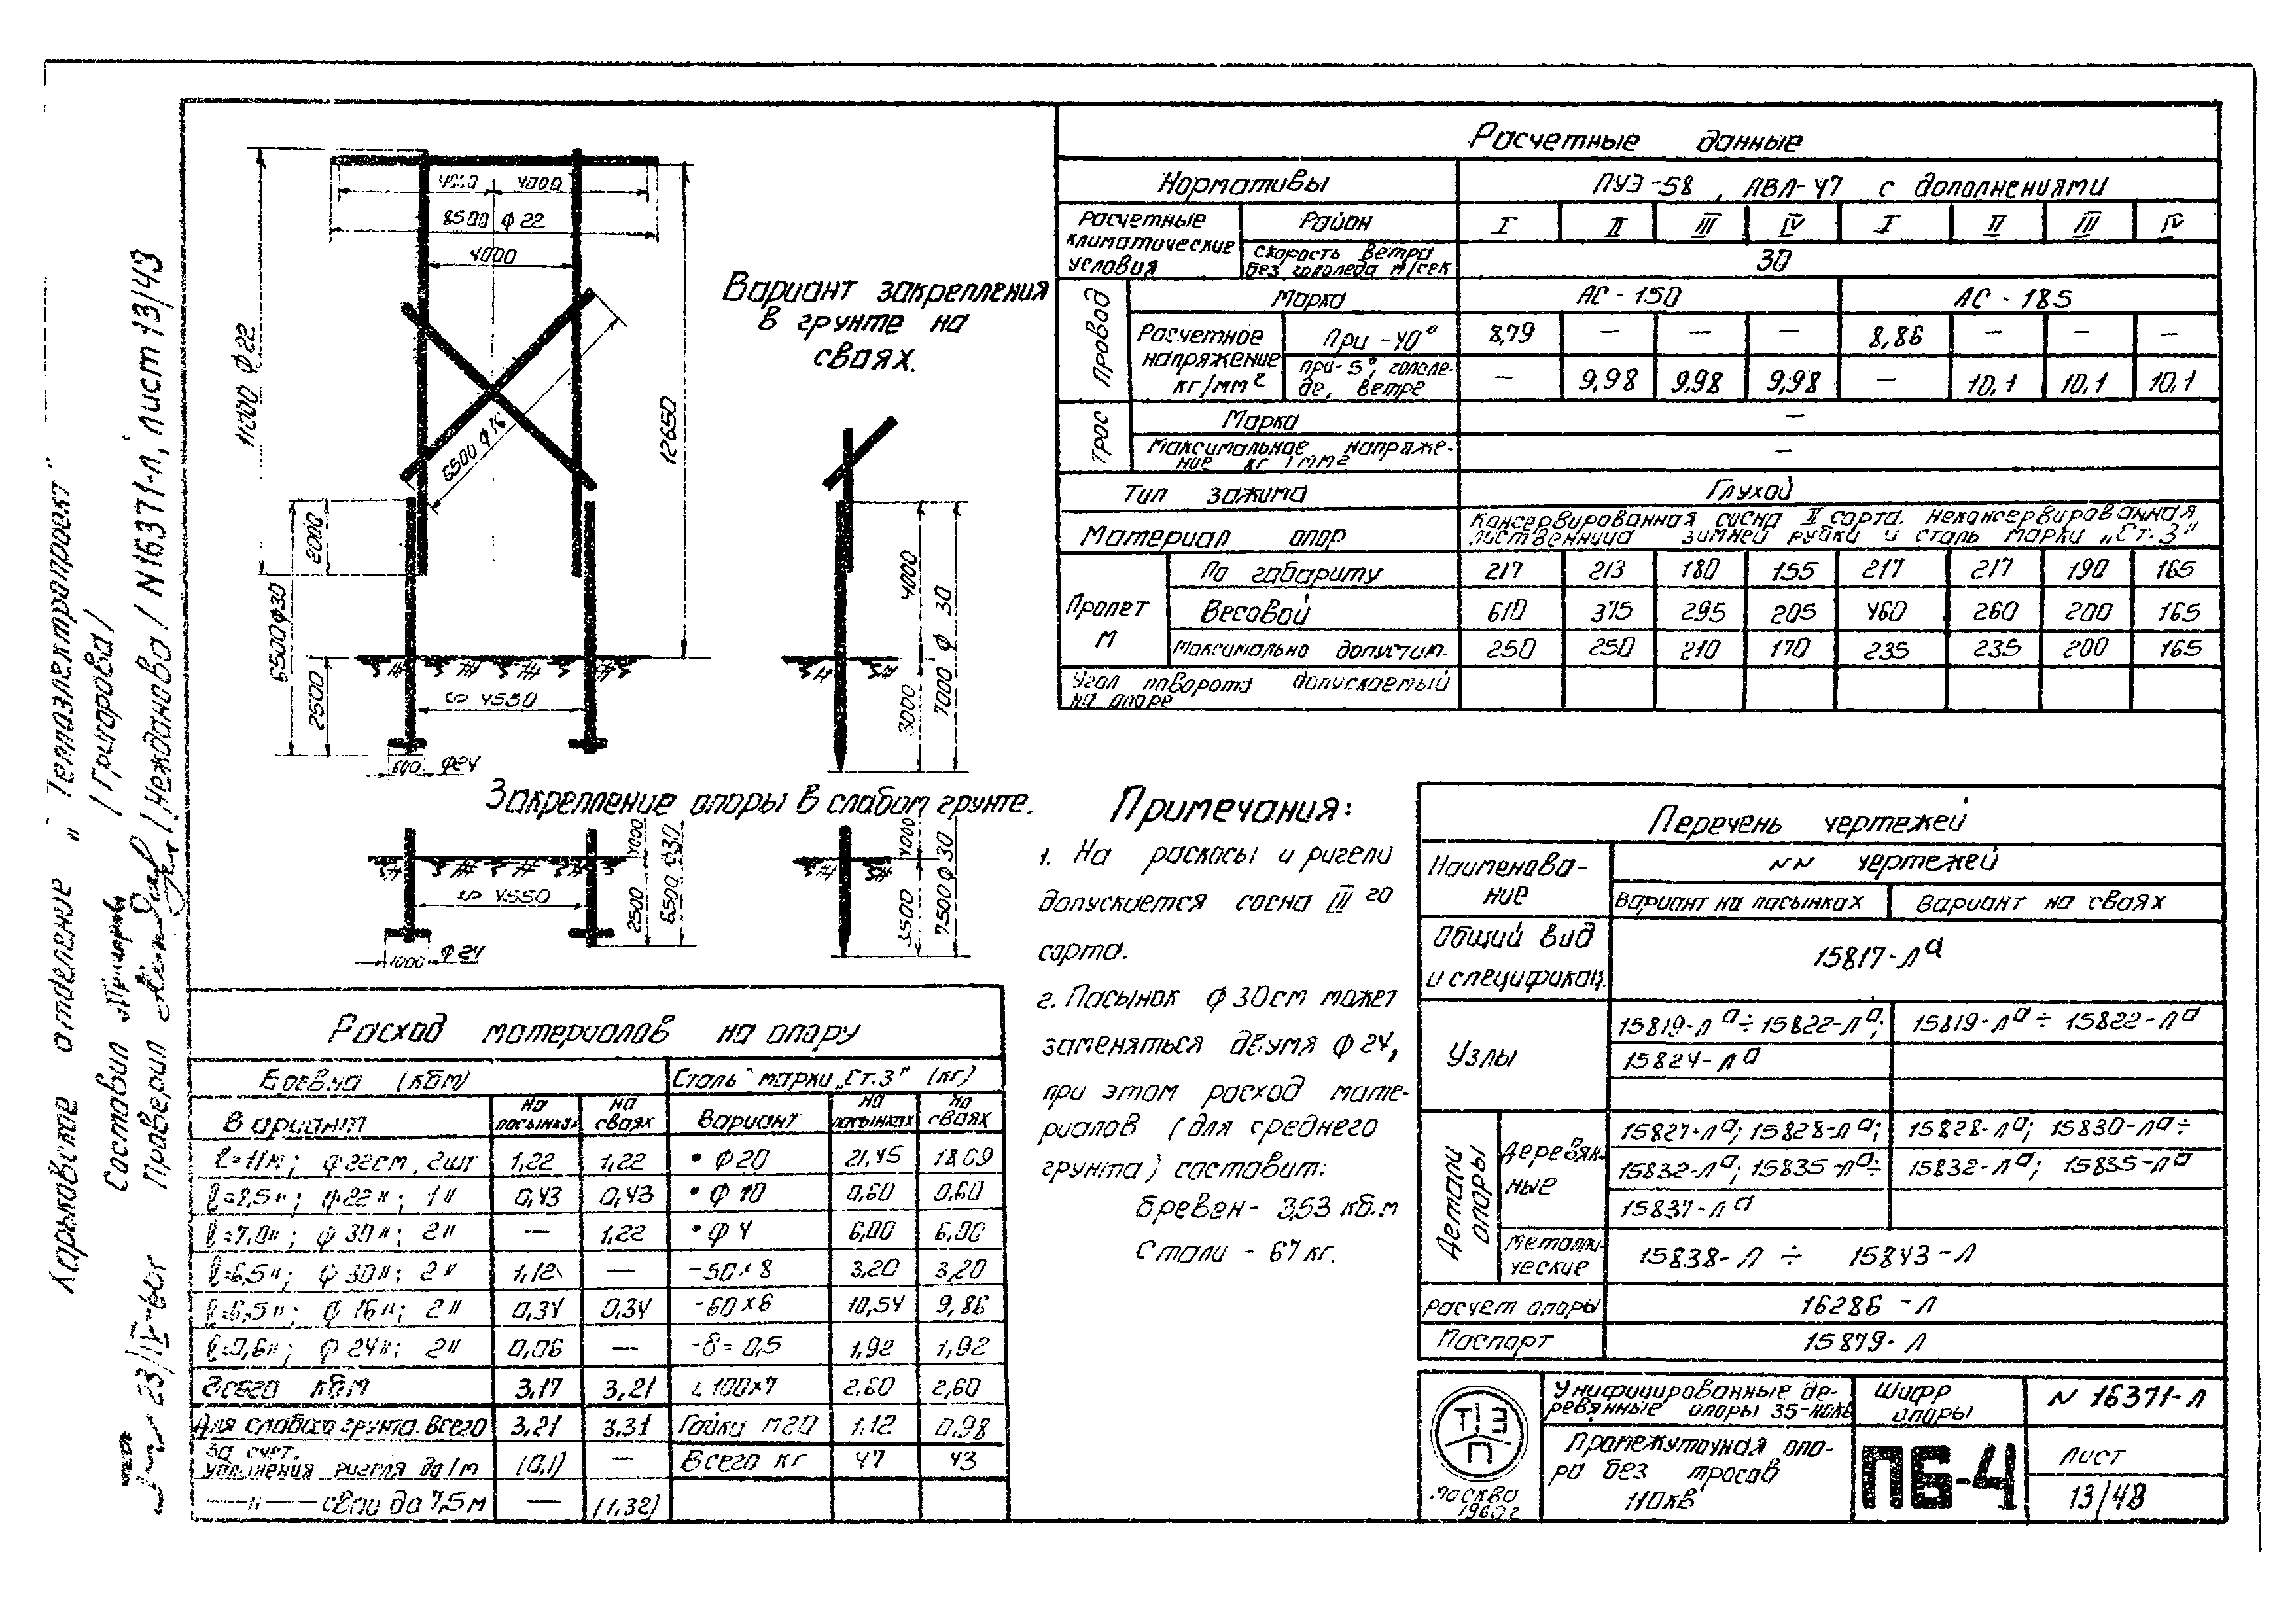 Харьковское отделение „Теплоэлектропроект"
Составил /Григорова/
Проверил /Нежданова/ N16371-л, лист 13/43
4000 4000
8500 ф 22
4000
11000 ф 22
6500 ф 16
12650
2000
5500 ф 30
2500
∽ 4550
600 ф24
Вариант закрепления
в грунте на
сваях.
4000
3000
7000 ф 30
Закрепление опоры в слабом грунте.
∽ 4550
1000 ф 24
4000
2500
6500 ф30
4000
3500
7500 ф 30
Расчетные данные
Нормативы ПУЭ-58, ПВЛ-47 с дополнениями
Расчетные климатические условия
Район I II III IV I II III IV
Скорость ветра без гололеда м/сек 30
Провод
Марка АС-150 АС-185
Расчетное напряжение кг/мм2
При -40° 8,79 — — — 8,86 — — —
при-5°, гололе-
де, ветре — 9,98 9,98 9,98 — 10,1 10,1 10,1
Трос
Марка —
Максимальное напряже-
ние кг/мм2 —
Тип зажима Глухой
Материал опор Консервированная сосна II сорта. Неконсервированная
лиственница зимней рубки и сталь марки „Ст.3"
Пролет м
По габариту 217 213 180 155 217 217 190 165
Весовой 610 375 295 205 460 260 200 165
Максимально допустим. 250 250 210 170 235 235 200 165
Угол поворота допускаемый
на опоре
Примечания:
1. На раскосы и ригели
допускается сосна III го
сорта.
2. Пасынок ф 30см может
заменяться двумя ф 24,
при этом расход мате-
риалов (для среднего
грунта) составит:
бревен- 3,53 кб.м
Стали - 67 кг.
Расход материалов на опору
Бревна (кбм) Сталь марки „Ст.3" (кг)
Вариант на пасынках на сваях Вариант на пасынках на сваях
l=11м; ф 22см, 2шт 1,22 1,22 • ф20 21,45 18,09
l=8,5"; ф 22"; 1" 0,43 0,43 • ф 10 0,60 0,60
l=7,0"; ф 30"; 2" — 1,22 • ф 4 6,00 6,00
l=6,5"; ф 30"; 2" 1,12 — -50×8 3,20 3,20
l=6,5"; ф 16"; 2" 0,34 0,34 -60×6 10,54 9,86
l=0,6"; ф 24"; 2" 0,06 — -δ=0,5 1,92 1,92
Всего кбм 3,17 3,21 ∟100×7 2,60 2,60
Для слабого грунта. Всего 3,21 3,31 Гайка М20 1,12 0,98
За счет.
удлинения ригеля до 1м (0,1) — Всего кг 47 43
—"— сваи до 7,5м — (1,32)
Перечень чертежей
Наименова-
ние
NN чертежей
Вариант на пасынках Вариант на сваях
Общий вид
и спецификац. 15817-Лᵃ
Узлы
15819-Лᵃ÷15822-Лᵃ; 15819-Лᵃ ÷ 15822-Лᵃ
15824-Лᵃ
Детали опоры
Деревян-
ные
15827-Лᵃ; 15828-Лᵃ; 15828-Лᵃ; 15830-Лᵃ÷
15832-Лᵃ; 15835-Лᵃ÷ 15832-Лᵃ; 15835-Лᵃ
15837-Лᵃ
Металли-
ческие 15838-Л ÷ 15843-Л
Расчет опоры 16286-Л
Паспорт 15879-Л
ТЭП
Москва
1960г
Унифицированные де-
ревянные опоры 35-110кв
Шифр
опоры
N 16371-Л
Промежуточная опо-
ра без тросов
110кв
ПБ-4
Лист
13/48